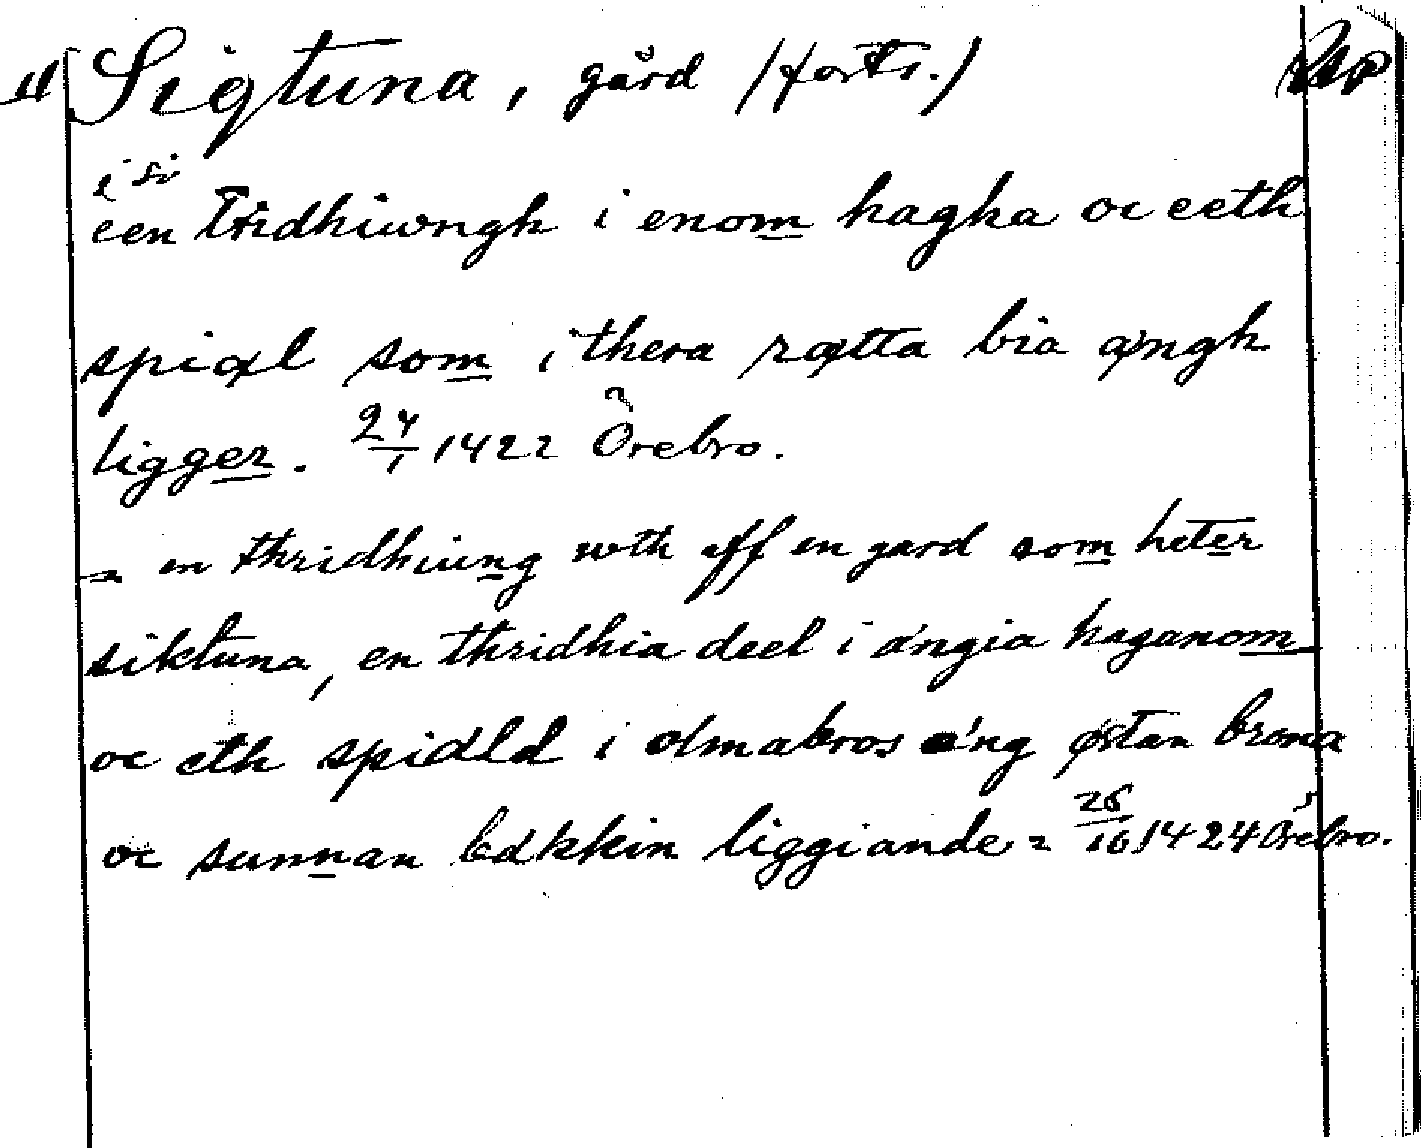 " Sigtuna, gård (forts.)
i si
een Tridhiwngh i enom hagha oc eeth
spiæl som i thera rætta bia ængh
ligger. 24/1 1422 Örebro.
= en thridhiung wth aff en gard som heter
siktuna, en thridhia deel i ængia haganom
oc eth spiæld i olmabros æng østan brona
oc sunnan bækkin liggiande = 26/10 1424 Örebro.